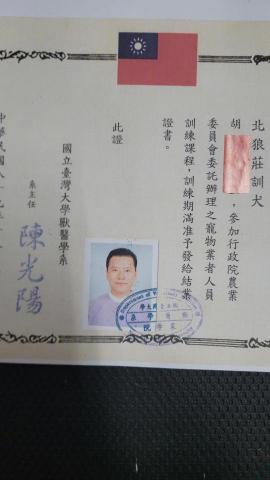 北狼莊訓犬
胡　　，參加行政院農業
委員會委託辦理之寵物業者人員
訓練課程，訓練期滿准予發給結業
證書。
此證
國立臺灣大學獸醫學系
系主任
陳光陽
中華民國八十